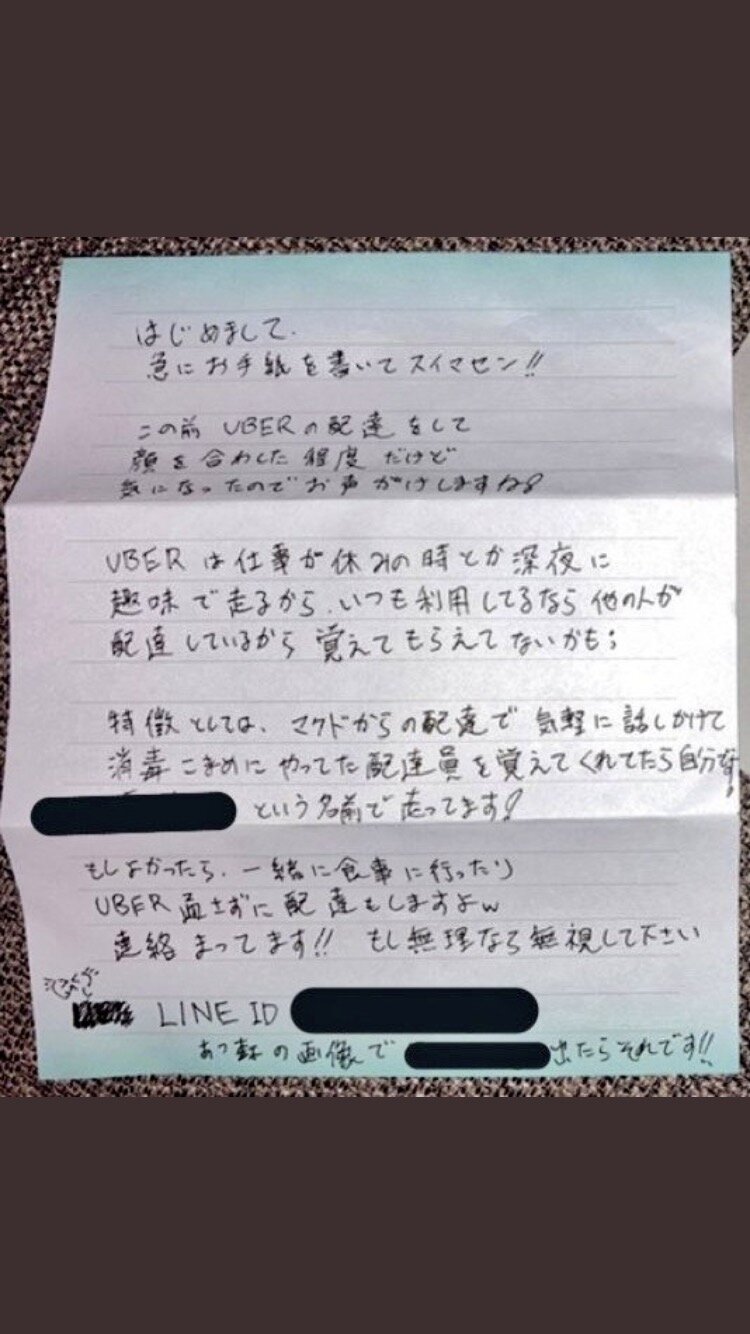 はじめまして.
急にお手紙を書いてスイマセン!!
この前 UBERの配達をして
顔を合わした程度だけど
気になったのでお声がけしますね!
UBERは仕事が休みの時とか深夜に
趣味で走るから、いつも利用してるなら他の人が
配達しているから覚えてもらえてないかも;
特徴としては、マクドからの配達で気軽に話しかけて
消毒こまめにやってた配達員を覚えてくれてたら自分な
という名前で走ってます!
もしよかったら、一緒に食事に行ったり
UBER 通さずに配達もしますよw
連絡まってます!! もし無理なら無視して下さい
LINE ID
の画像で 出たらそれです!!